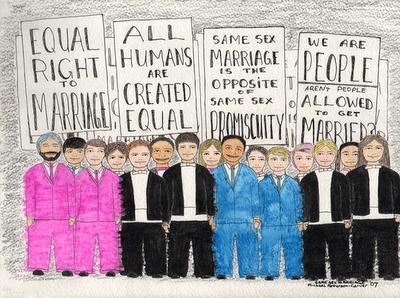 EQUAL
RIGHT
TO
MARRIAGE
ALL
HUMANS
ARE
CREATED
EQUAL
SAME SEX
MARRIAGE
IS THE
OPPOSITE
OF
SAME SEX
PROMISCUITY
WE ARE
PEOPLE
AREN'T PEOPLE
ALLOWED
TO GET
MARRIED?
SAME SEX MARRIAGE
'07